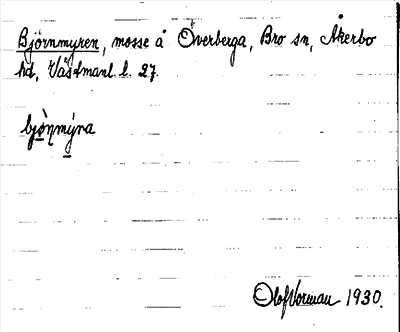 Björnmyren, mosse å Överberga, Bro sn, Åkerbo
hd, Västmanl. l. 27.
bjö̀ṇmýra
Olof Vorman 1930.